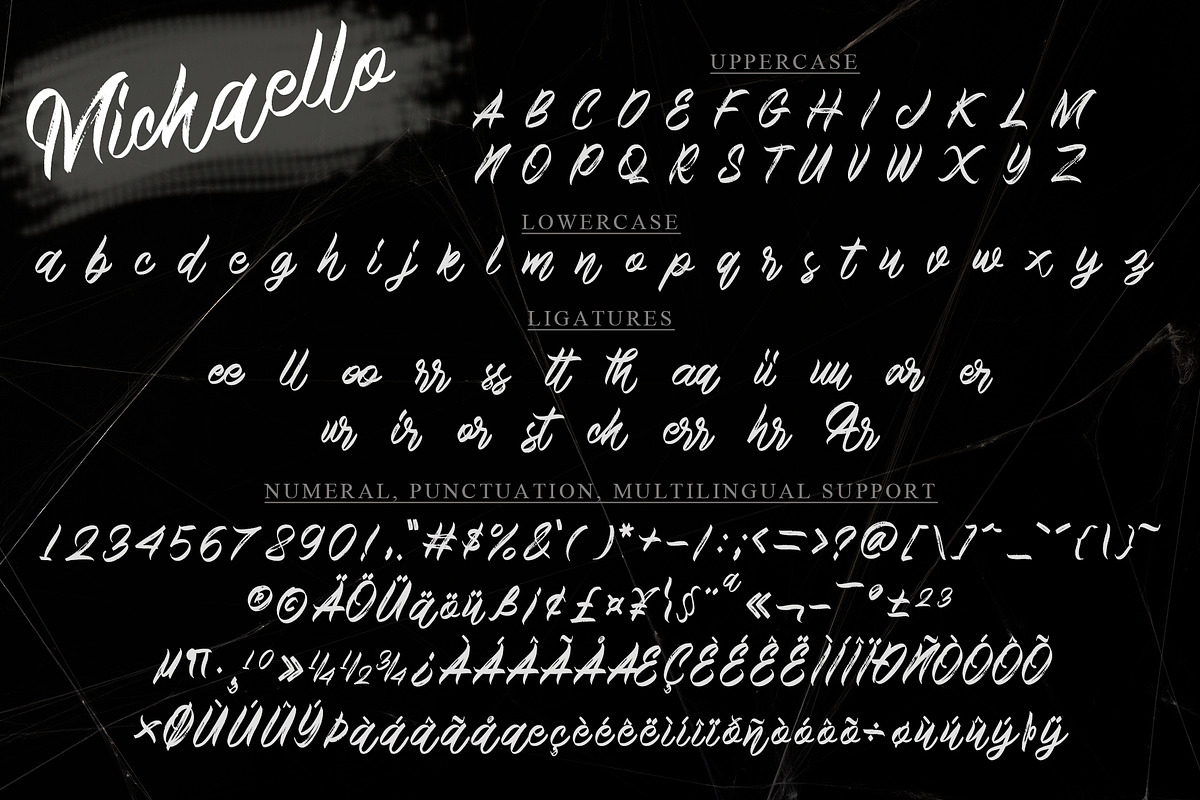 Michaello
UPPERCASE
A B C D E F G H I J K L M
N O P Q R S T U V W X Y Z
LOWERCASE
a b c d e g h i j k l m n o p q r s t u v w x y z
LIGATURES
ee ll oo rr ss tt th aa ii uu ar er
ur ir or st ch err hr Ar
NUMERAL, PUNCTUATION, MULTILINGUAL SUPPORT
1234567890!,."#$%&'()*+-/:;<=>?@[\]^_`´{|}~
®©ÄÖÜäöüß¡¢£¤¥¦§¨ª«¬–¯°±²³
µ¶·¸¹º»¼½¾¿ÀÁÂÃÅÆÇÈÉÊËÌÍÎÏÐÑÒÓÔÕ
×ØÙÚÛÝÞàáâãåæçèéêëìíîïðñòóôõ÷øùúûýþÿ